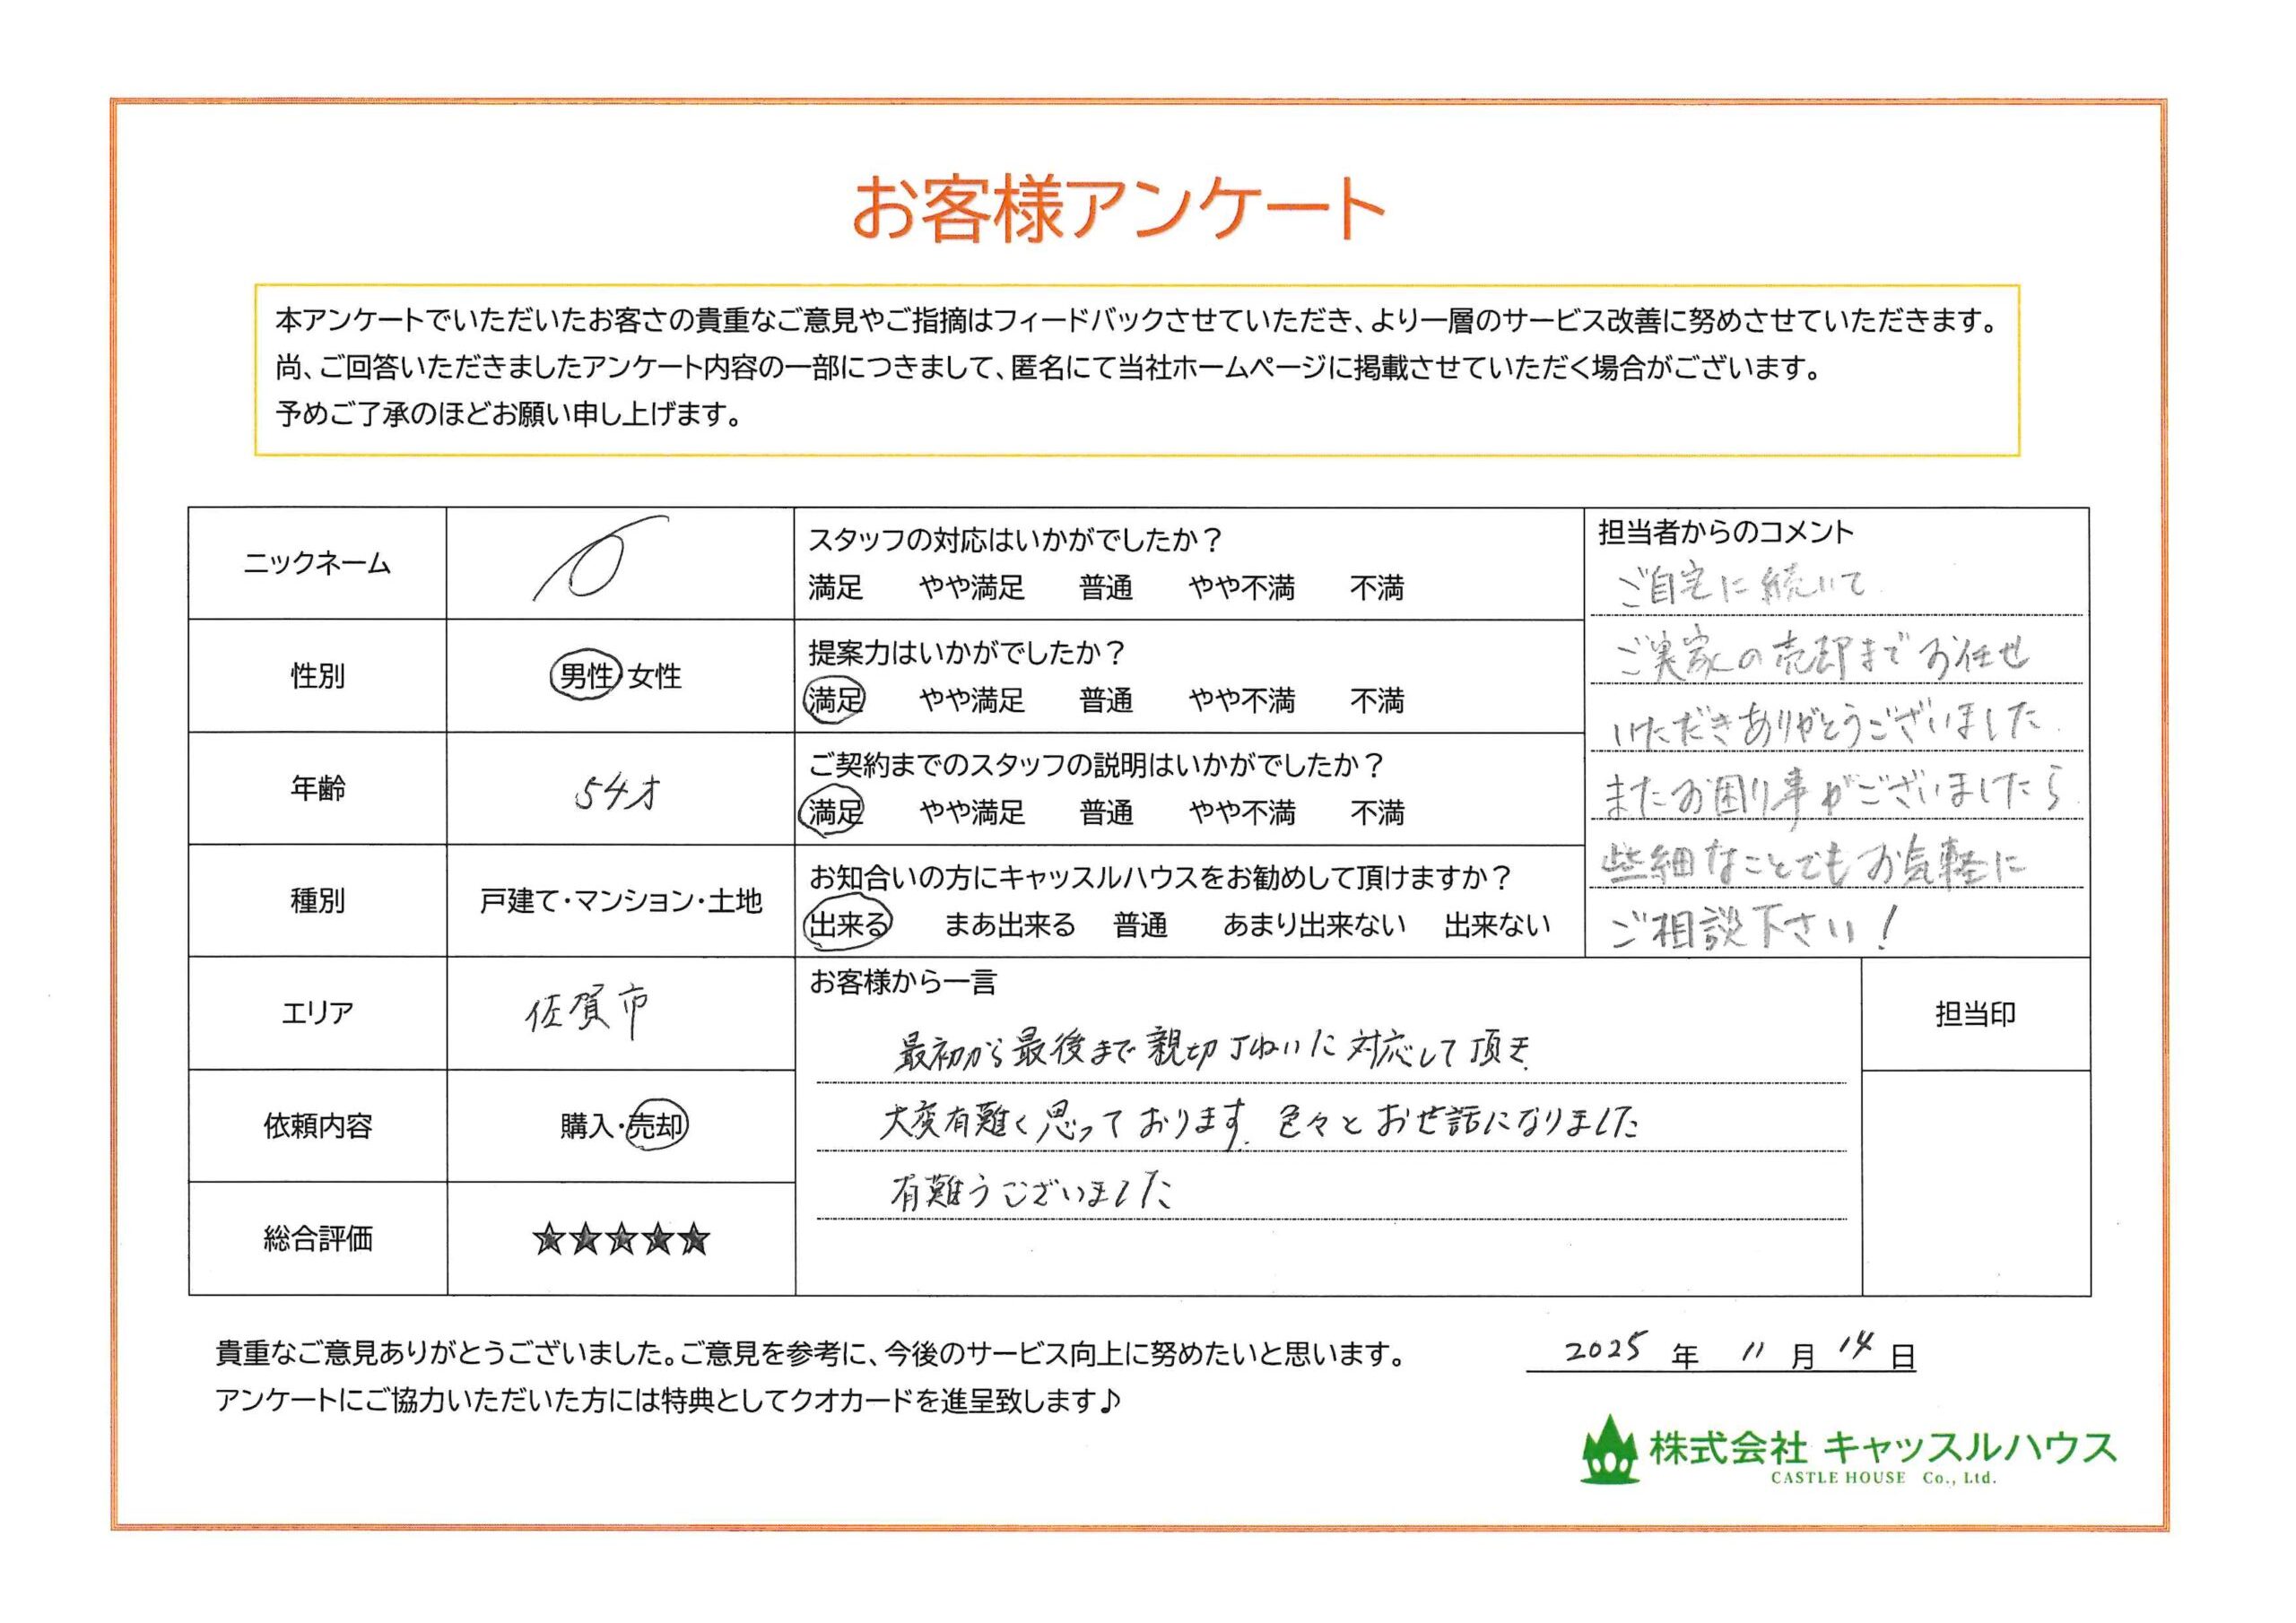 お客様アンケート
本アンケートでいただいたお客さの貴重なご意見やご指摘はフィードバックさせていただき、より一層のサービス改善に努めさせていただきます。
尚、ご回答いただきましたアンケート内容の一部につきまして、匿名にて当社ホームページに掲載させていただく場合がございます。
予めご了承のほどお願い申し上げます。
ニックネーム
性別
男性 女性
年齢
54才
種別
戸建て・マンション・土地
エリア
佐賀市
依頼内容
購入・売却
総合評価
★★★★★
スタッフの対応はいかがでしたか？
満足 やや満足 普通 やや不満 不満
提案力はいかがでしたか？
満足 やや満足 普通 やや不満 不満
ご契約までのスタッフの説明はいかがでしたか？
満足 やや満足 普通 やや不満 不満
お知合いの方にキャッスルハウスをお勧めして頂けますか？
出来る まあ出来る 普通 あまり出来ない 出来ない
担当者からのコメント
ご自宅に続いて
ご実家の売却までお任せ
いただきありがとうございました
またお困り事がございましたら
些細なことでもお気軽に
ご相談下さい！
お客様から一言
最初から最後まで親切丁ねいに対応して頂き
大変有難く思っております 色々とお世話になりました
有難うございました
担当印
貴重なご意見ありがとうございました。ご意見を参考に、今後のサービス向上に努めたいと思います。
アンケートにご協力いただいた方には特典としてクオカードを進呈致します♪
2025 年 11 月 14 日
株式会社 キャッスルハウス
CASTLE HOUSE Co., Ltd.